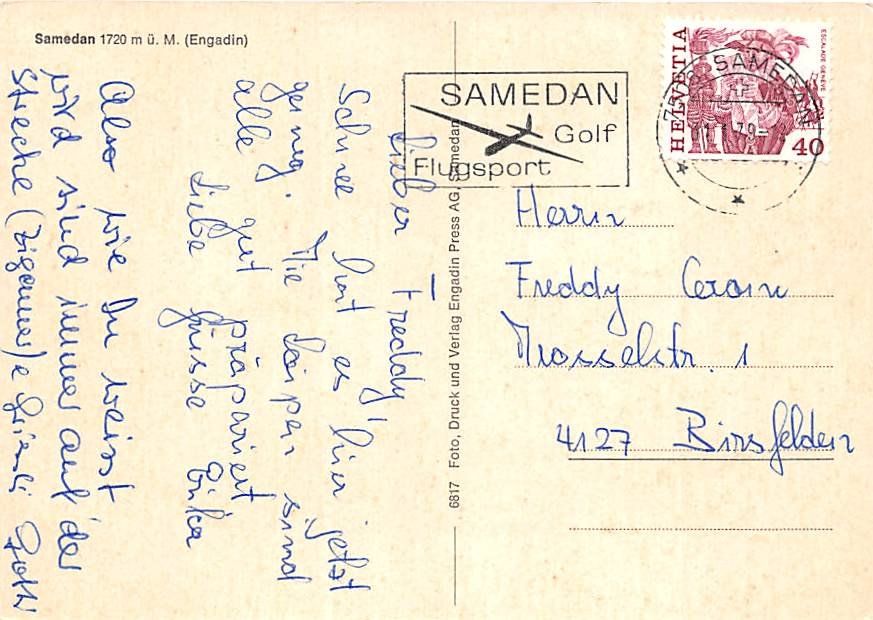 Samedan 1720 m ü. M. (Engadin)
Lieber Freddy,
Schnee hat es hier jetzt
genug. Die Loipen sind
alle gut präpariert
Liebe Grüsse Erika
Also wie Du weisst
wird sind immer auf der
Strecke (Zigeuner)e
6817 Foto, Druck und Verlag Engadin Press AG, Samedan
SAMEDAN
Golf
Flugsport
7503 SAMEDAN
HELVETIA
ESCALADE GENÈVE
40
Herrn
Freddy
Mosselstr. 1
4127 Birsfelden